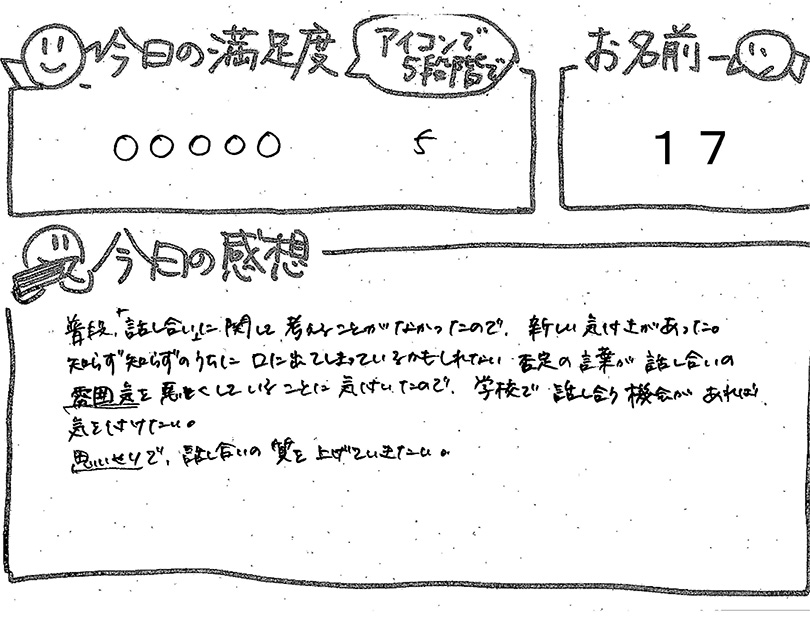 今日の満足度
アイコンで
5段階で
お名前
○○○○○ 5
17
今日の感想
普段、「話し合い」に関して考えることがなかったので、新しい気付きがあった。
知らず知らずのうちに口に出てしまっているかもしれない否定の言葉が話し合いの
雰囲気を悪くしていることに気付いたので、学校で話し合う機会があれば
気を付けたい。
思いやりで、話し合いの質を上げていきたい。